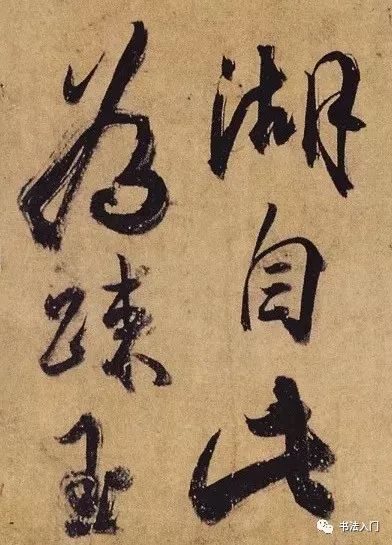 湖自此
為踈玉
书法入门